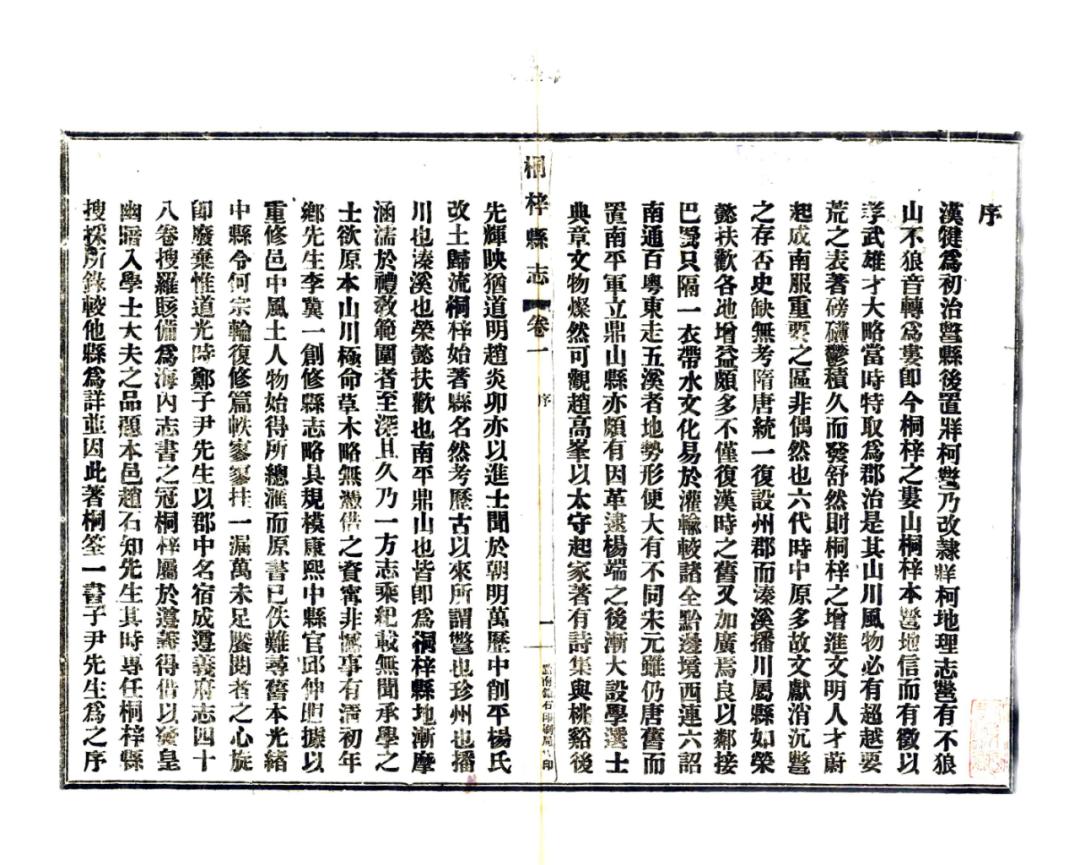 序
漢犍爲初治鄨縣後置牂柯鄨乃改隸牂柯地理志鄨有不狼
山不狼音轉爲婁卽今桐梓之婁山桐梓本鄨地信而有徵以
孝武雄才大略當時特取爲郡治是其山川風物必有超越要
荒之表著磅礴鬱積久而發舒然則桐梓之增進文明人才蔚
起成南服重要之區非偶然也六代時中原多故文獻消沉鄨
之存否史缺無考隋唐統一復設州郡而溱溪播川屬縣如榮
懿扶歡各地增益頗多不僅復漢時之舊又加廣焉良以鄰接
巴蜀只隔一衣帶水文化易於灌輸較諸全黔邊境西連六詔
南通百粤東走五溪者地勢形便大有不同宋元雖仍唐舊而
置南平軍立鼎山縣亦頗有因革逮楊端之後漸大設學選士
典章文物燦然可觀趙高峯以太守起家著有詩集與桃谿後
桐梓縣志 卷一 序 一
先輝映猶道明趙炎卯亦以進士聞於朝明萬歷中削平楊氏
改土歸流桐梓始著縣名然考歷古以來所謂鄨也珍州也播
川也溱溪也榮懿扶歡也南平鼎山也皆卽爲桐梓縣地漸摩
涵濡於禮教範圍者至深且久乃一方志乘紀載無聞承學之
士欲原本山川極命草木略無憑借之資寧非憾事有淸初年
鄉先生李冀一創修縣志略具規模康熙中縣官邱仲䏁據以
重修邑中風土人物始得所總滙而原書已佚難尋舊本光緒
中縣令何宗輪復修篇帙寥寥挂一漏萬未足饜閱者之心旋
卽廢棄惟道光時鄭子尹先生以郡中名宿成遵義府志四十
八卷搜羅賅備爲海內志書之冠桐梓屬於遵義得借以發皇
幽曆入學士大夫之品題本邑趙石知先生其時專任桐梓縣
搜採所錄較他縣爲詳並因此著桐筌一書子尹先生爲之序